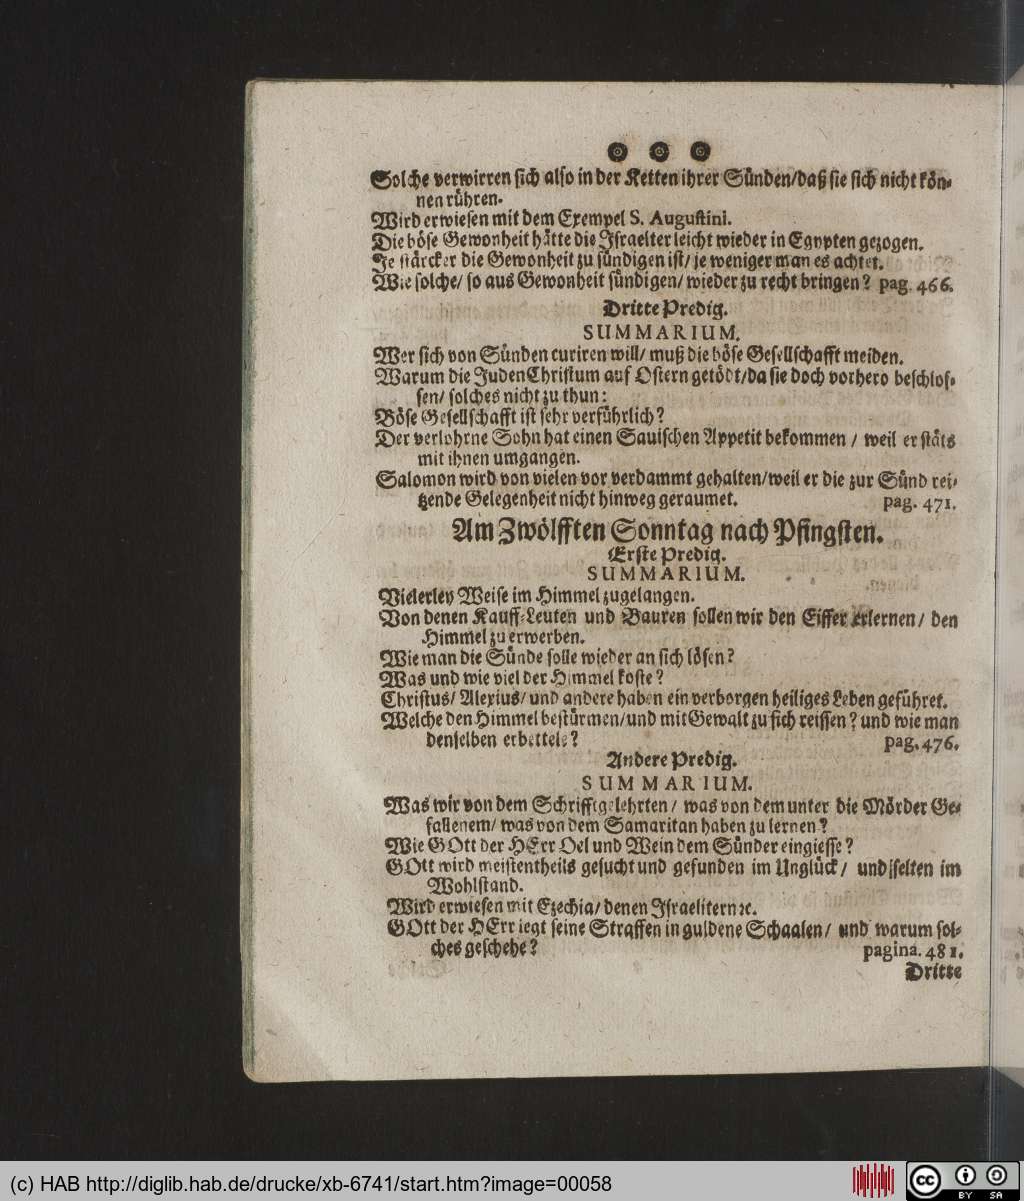 Solche verwirren sich also in der Ketten ihrer Sünden/daß sie sich nicht kön-
nen rühren.
Wird erwiesen mit dem Exempel S. Augustini.
Die böse Gewonheit hätte die Israelter leicht wieder in Egypten gezogen.
Je stärcker die Gewonheit zu sündigen ist/ je weniger man es achtet.
Wie solche/ so aus Gewonheit sündigen/ wieder zu recht bringen? pag. 466.
Dritte Predig.
SUMMARIUM.
Wer sich von Sünden curiren will/ muß die böse Gesellschafft meiden.
Warum die Juden Christum auf Ostern getödt/da sie doch vorhero beschlos-
sen/ solches nicht zu thun:
Böse Gesellschafft ist sehr verführlich?
Der verlohrne Sohn hat einen Sauischen Appetit bekommen / weil er stäts
mit ihnen umgangen.
Salomon wird von vielen vor verdammt gehalten/weil er die zur Sünd rei-
tzende Gelegenheit nicht hinweg geraumet. pag. 471.
Am Zwölfften Sonntag nach Pfingsten.
Erste Predig.
SUMMARIUM.
Vielerley Weise im Himmel zugelangen.
Von denen Kauff-Leuten und Bauren sollen wir den Eiffer erlernen / den
Himmel zu erwerben.
Wie man die Sünde solle wieder an sich lösen?
Was und wie viel der Himmel koste?
Christus/ Alexius/ und andere haben ein verborgen heiliges Leben geführet.
Welche den Himmel bestürmen/und mit Gewalt zu sich reissen? und wie man
denselben erbettele? pag. 476.
Andere Predig.
SUMMARIUM.
Was wir von dem Schrifftgelehrten / was von dem unter die Mörder Ge-
fallenem/ was von dem Samaritan haben zu lernen?
Wie GOtt der HErr Oel und Wein dem Sünder eingiesse?
GOtt wird meistentheils gesucht und gefunden im Unglück / und selten im
Wohlstand.
Wird erwiesen mit Ezechia/ denen Israelitern ꝛc.
GOtt der HErr legt seine Straffen in guldene Schaalen / und warum sol-
ches geschehe? pagina. 481.
Dritte
(c) HAB http://diglib.hab.de/drucke/xb-6741/start.htm?image=00058
cc BY SA